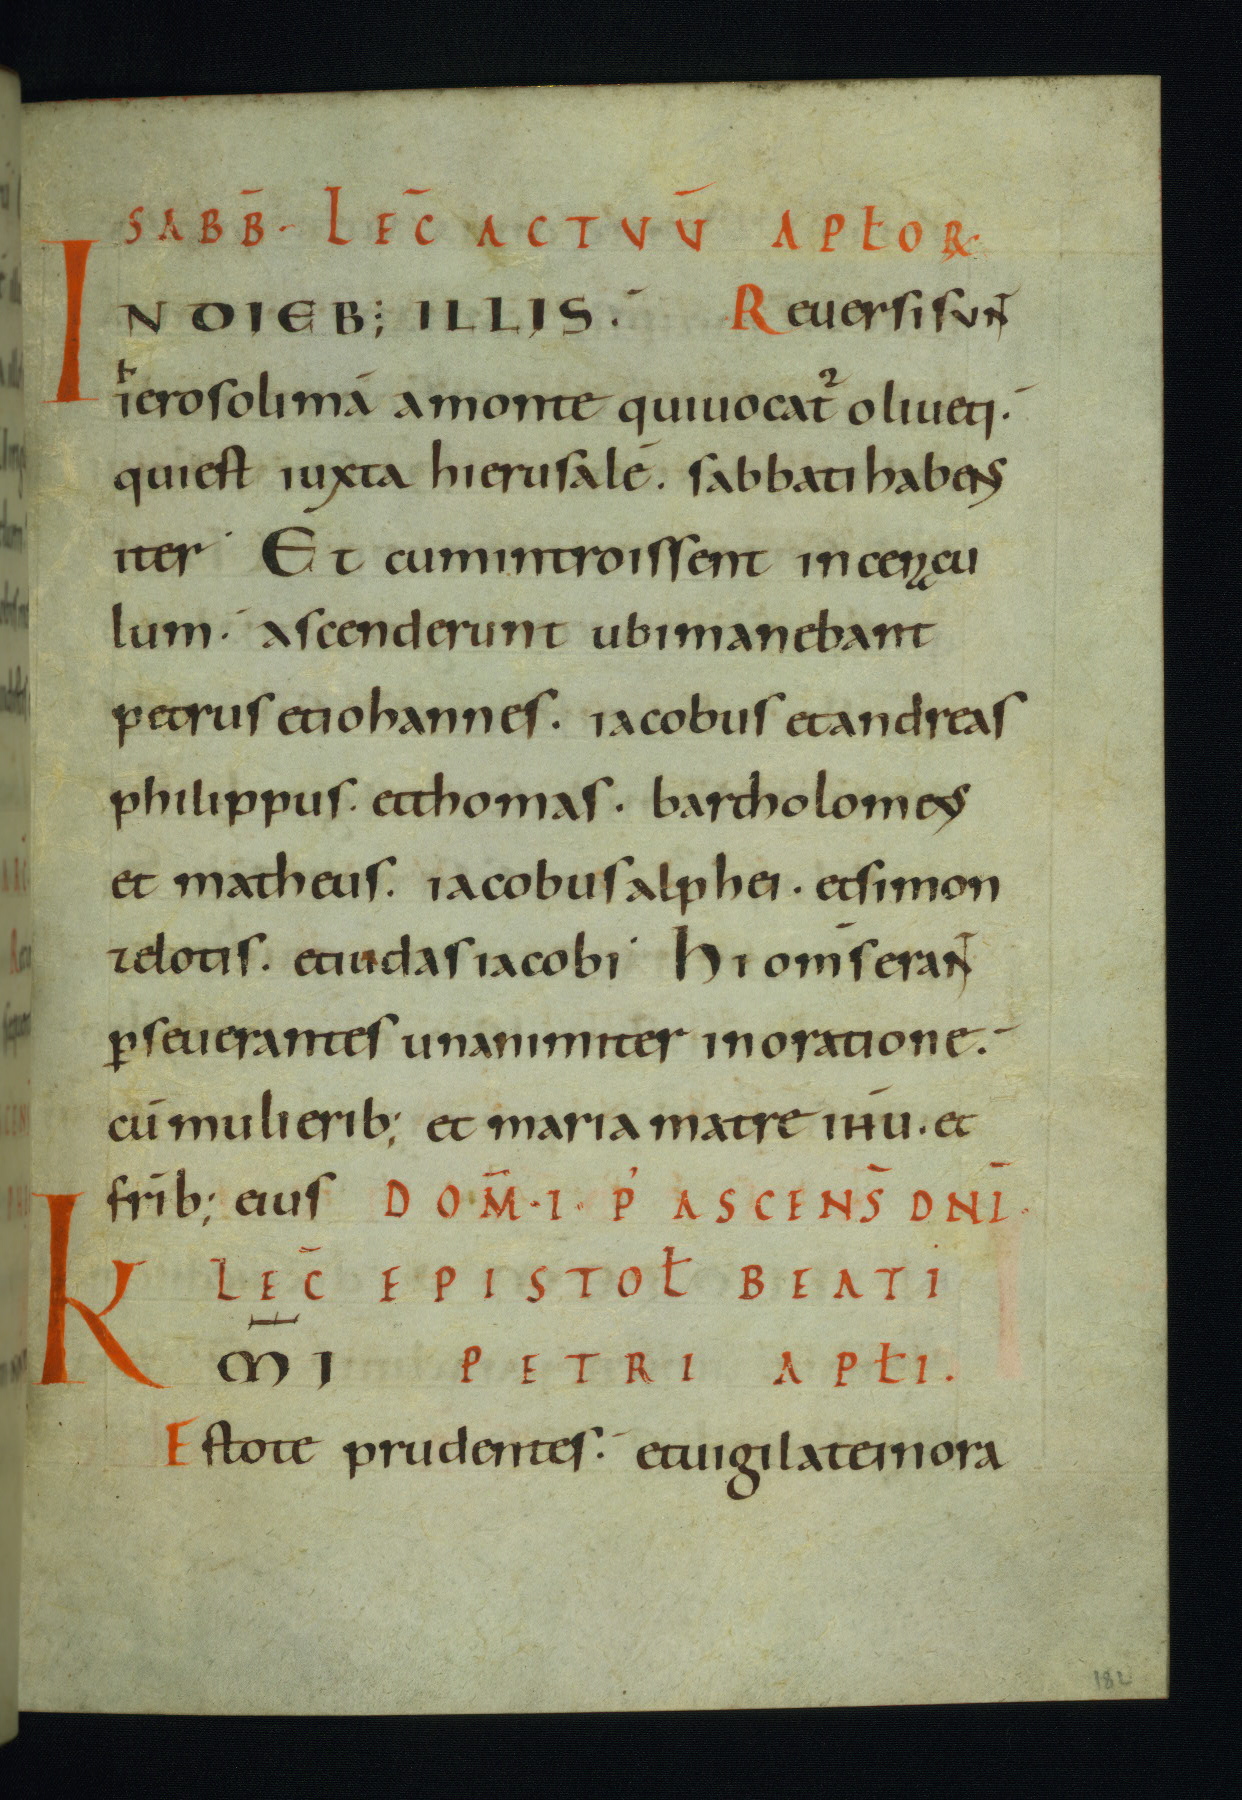 SABB̄. LEC̄ ACTVŪ APŁOR
IN DIEB; ILLIS. Reuersi sunt
ierosolimā amonte quiuocat᷑ oliueti.
quiest iuxta hierusalē. sabbati habens
iter Et cumintroissent incenacu
lum. ascenderunt ubimanebant
petrus etiohannes. iacobus etandreas
philippus. etthomas. bartholomeus
et matheus. iacobus alphei. etsimon
zelotis. etiudas iacobi Hi om̄s erant
ꝑseuerantes unanimiter inoratione.
cū mulierib; et maria matre ihū. et
fr̄ib; eius DOM̄.I. P' ASCENS̄ DNĪ.
LEC̄ EPISTOŁ BEATI
K̄MI PETRI APŁI.
Estote prudentes. etuigilateinora
182